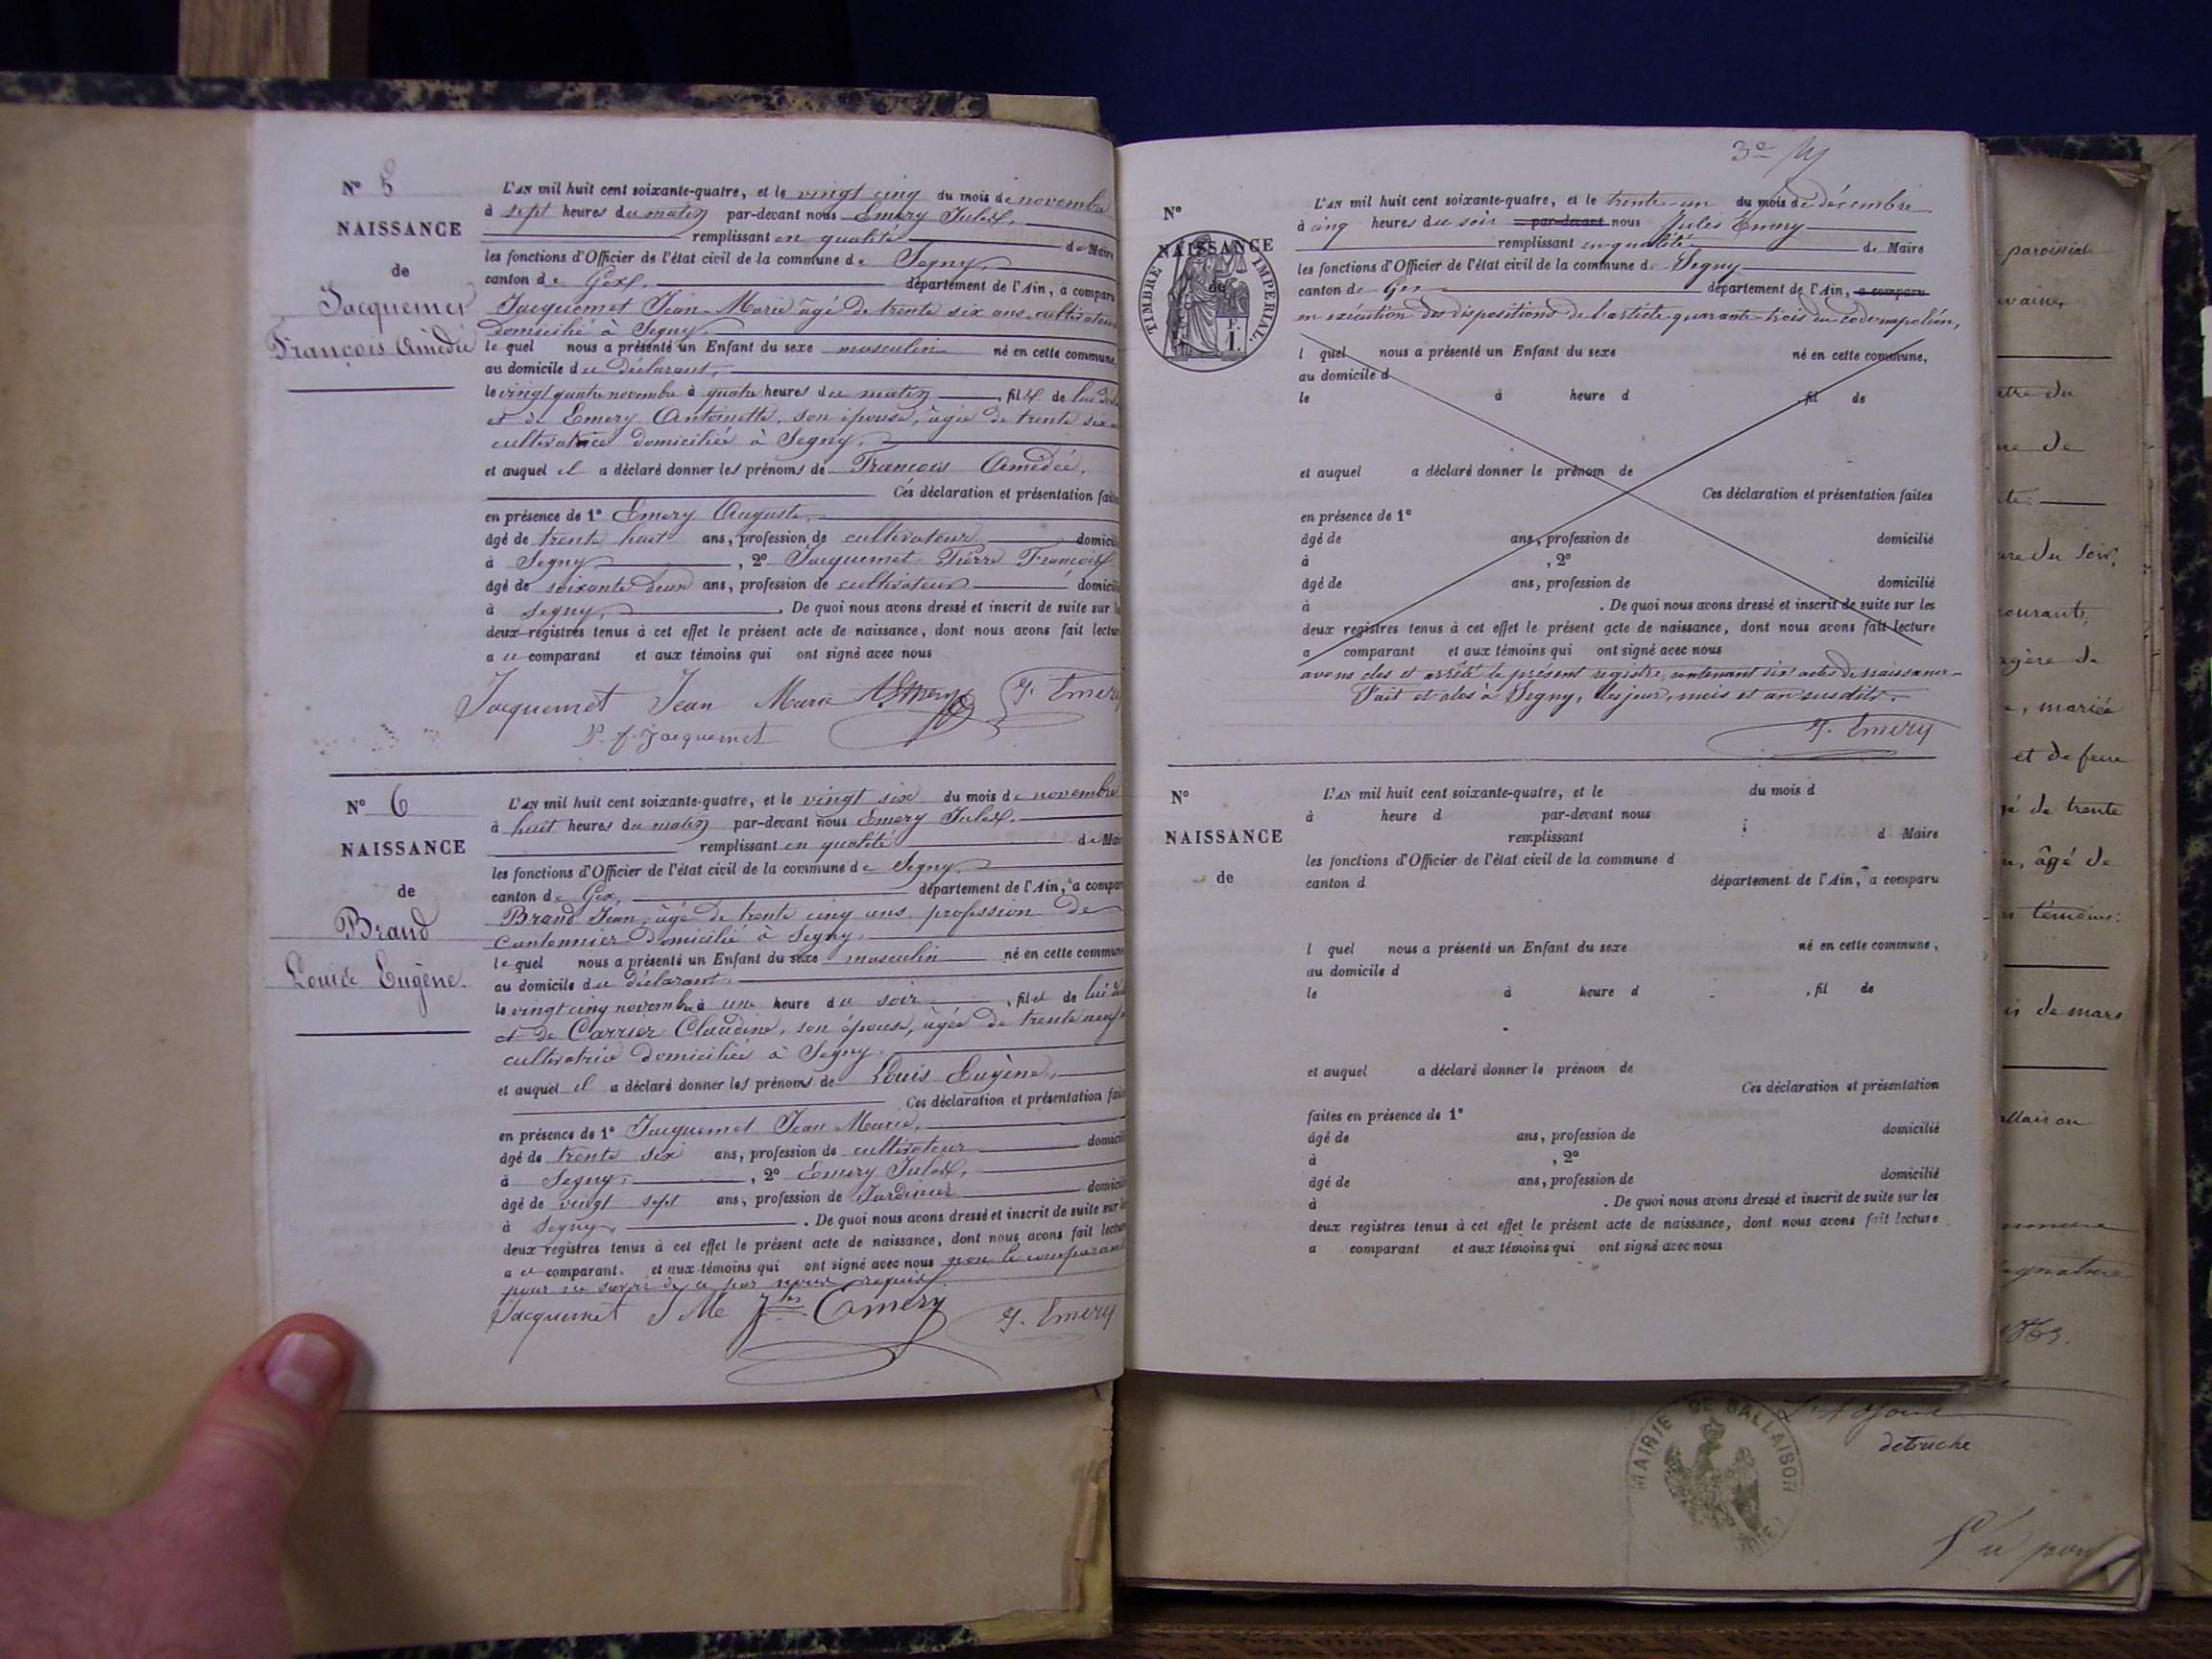 N° 5
NAISSANCE
de
Jacquemet
François Amédée
L'AN mil huit cent soixante-quatre, et le vingt cinq du mois de novembre
à sept heures du matin par-devant nous Emery Jules,
remplissant en qualité de Maire
les fonctions d'Officier de l'état civil de la commune de Segny,
canton de Gex, département de l'Ain, a comparu
Jacquemet Jean-Marie âgé de trente six ans cultivateur
domicilié à Segny
le quel nous a présenté un Enfant du sexe masculin né en cette commune,
au domicile du déclarant,
le vingt quatre novembre à quatre heures du matin, fils de lui
et de Emery Antoinette, son épouse, âgée de trente six
cultivatrice domiciliée à Segny,
et auquel il a déclaré donner les prénoms de François Amédée.
Ces déclaration et présentation faites
en présence de 1° Emery Auguste,
âgé de trente huit ans, profession de cultivateur domicilié
à Segny, 2° Jacquemet Pierre François
âgé de soixante deux ans, profession de cultivateur domicilié
à Segny, . De quoi nous avons dressé et inscrit de suite sur les
deux registres tenus à cet effet le présent acte de naissance, dont nous avons fait lecture
a u comparant et aux témoins qui ont signé avec nous
Jacquemet Jean Marie A Emery J. Emery
P. f. Jacquemet
N° 6
NAISSANCE
de
Brand
Louis Eugène.
L'AN mil huit cent soixante-quatre, et le vingt six du mois de novembre
à huit heures du matin par-devant nous Emery Jules,
remplissant en qualité de Maire
les fonctions d'Officier de l'état civil de la commune de Segny,
canton de Gex, département de l'Ain, a comparu
Brand Jean, âgé de trente cinq ans profession de
Cantonnier domicilié à Segny
le quel nous a présenté un Enfant du sexe masculin né en cette commune
au domicile du déclarant.
le vingt cinq novembre à une heure du soir, fils de lui
et de Carrier Claudine, son épouse, âgée de trente neuf
cultivatrice domiciliée à Segny
et auquel il a déclaré donner les prénoms de Louis Eugène,
Ces déclaration et présentation faites
en présence de 1° Jacquemet Jean Marie,
âgé de trente six ans, profession de cultivateur domicilié
à Segny, 2° Emery Jules,
âgé de vingt sept ans, profession de Jardinier domicilié
à Segny, . De quoi nous avons dressé et inscrit de suite sur les
deux registres tenus à cet effet le présent acte de naissance, dont nous avons fait lecture
a u comparant, et aux témoins qui ont signé avec nous non le comparant
pour ne savoir de ce par nous requis.
Jacquemet J Me Jles Emery J. Emery
3e
N°
NAISSANCE
de
TIMBRE IMPERIAL
F.
1.
L'AN mil huit cent soixante-quatre, et le trente-un du mois de décembre
à cinq heures du soir par-devant nous Jules Emery
remplissant en qualité de Maire
les fonctions d'Officier de l'état civil de la commune de Segny
canton de Gex département de l'Ain, a comparu
en exécution des dispositions de l'article quarante-trois du code napoléon,
l quel nous a présenté un Enfant du sexe né en cette commune,
au domicile d
le à heure d , fil de
et auquel a déclaré donner le prénom de
Ces déclaration et présentation faites
en présence de 1°
âgé de ans, profession de domicilié
à , 2°
âgé de ans, profession de domicilié
à . De quoi nous avons dressé et inscrit de suite sur les
deux registres tenus à cet effet le présent acte de naissance, dont nous avons fait lecture
a comparant et aux témoins qui ont signé avec nous
avons clos et arrêté le présent registre, contenant six actes de naissance
Fait et clos à Segny, les jour, mois et an susdits.
J. Emery
N°
NAISSANCE
de
L'AN mil huit cent soixante-quatre, et le du mois d
à heure d par-devant nous
remplissant d Maire
les fonctions d'Officier de l'état civil de la commune d
canton d département de l'Ain, a comparu
l quel nous a présenté un Enfant du sexe né en cette commune,
au domicile d
le à heure d , fil de
et auquel a déclaré donner le prénom de
Ces déclaration et présentation
faites en présence de 1°
âgé de ans, profession de domicilié
à , 2°
âgé de ans, profession de domicilié
à . De quoi nous avons dressé et inscrit de suite sur les
deux registres tenus à cet effet le présent acte de naissance, dont nous avons fait lecture
a comparant et aux témoins qui ont signé avec nous
paroissial
du soir,
courant,
de
, mariée
et de feue
de trente
, âgé de
témoins:
de mars
MAIRIE DE BALLAISON
detruche